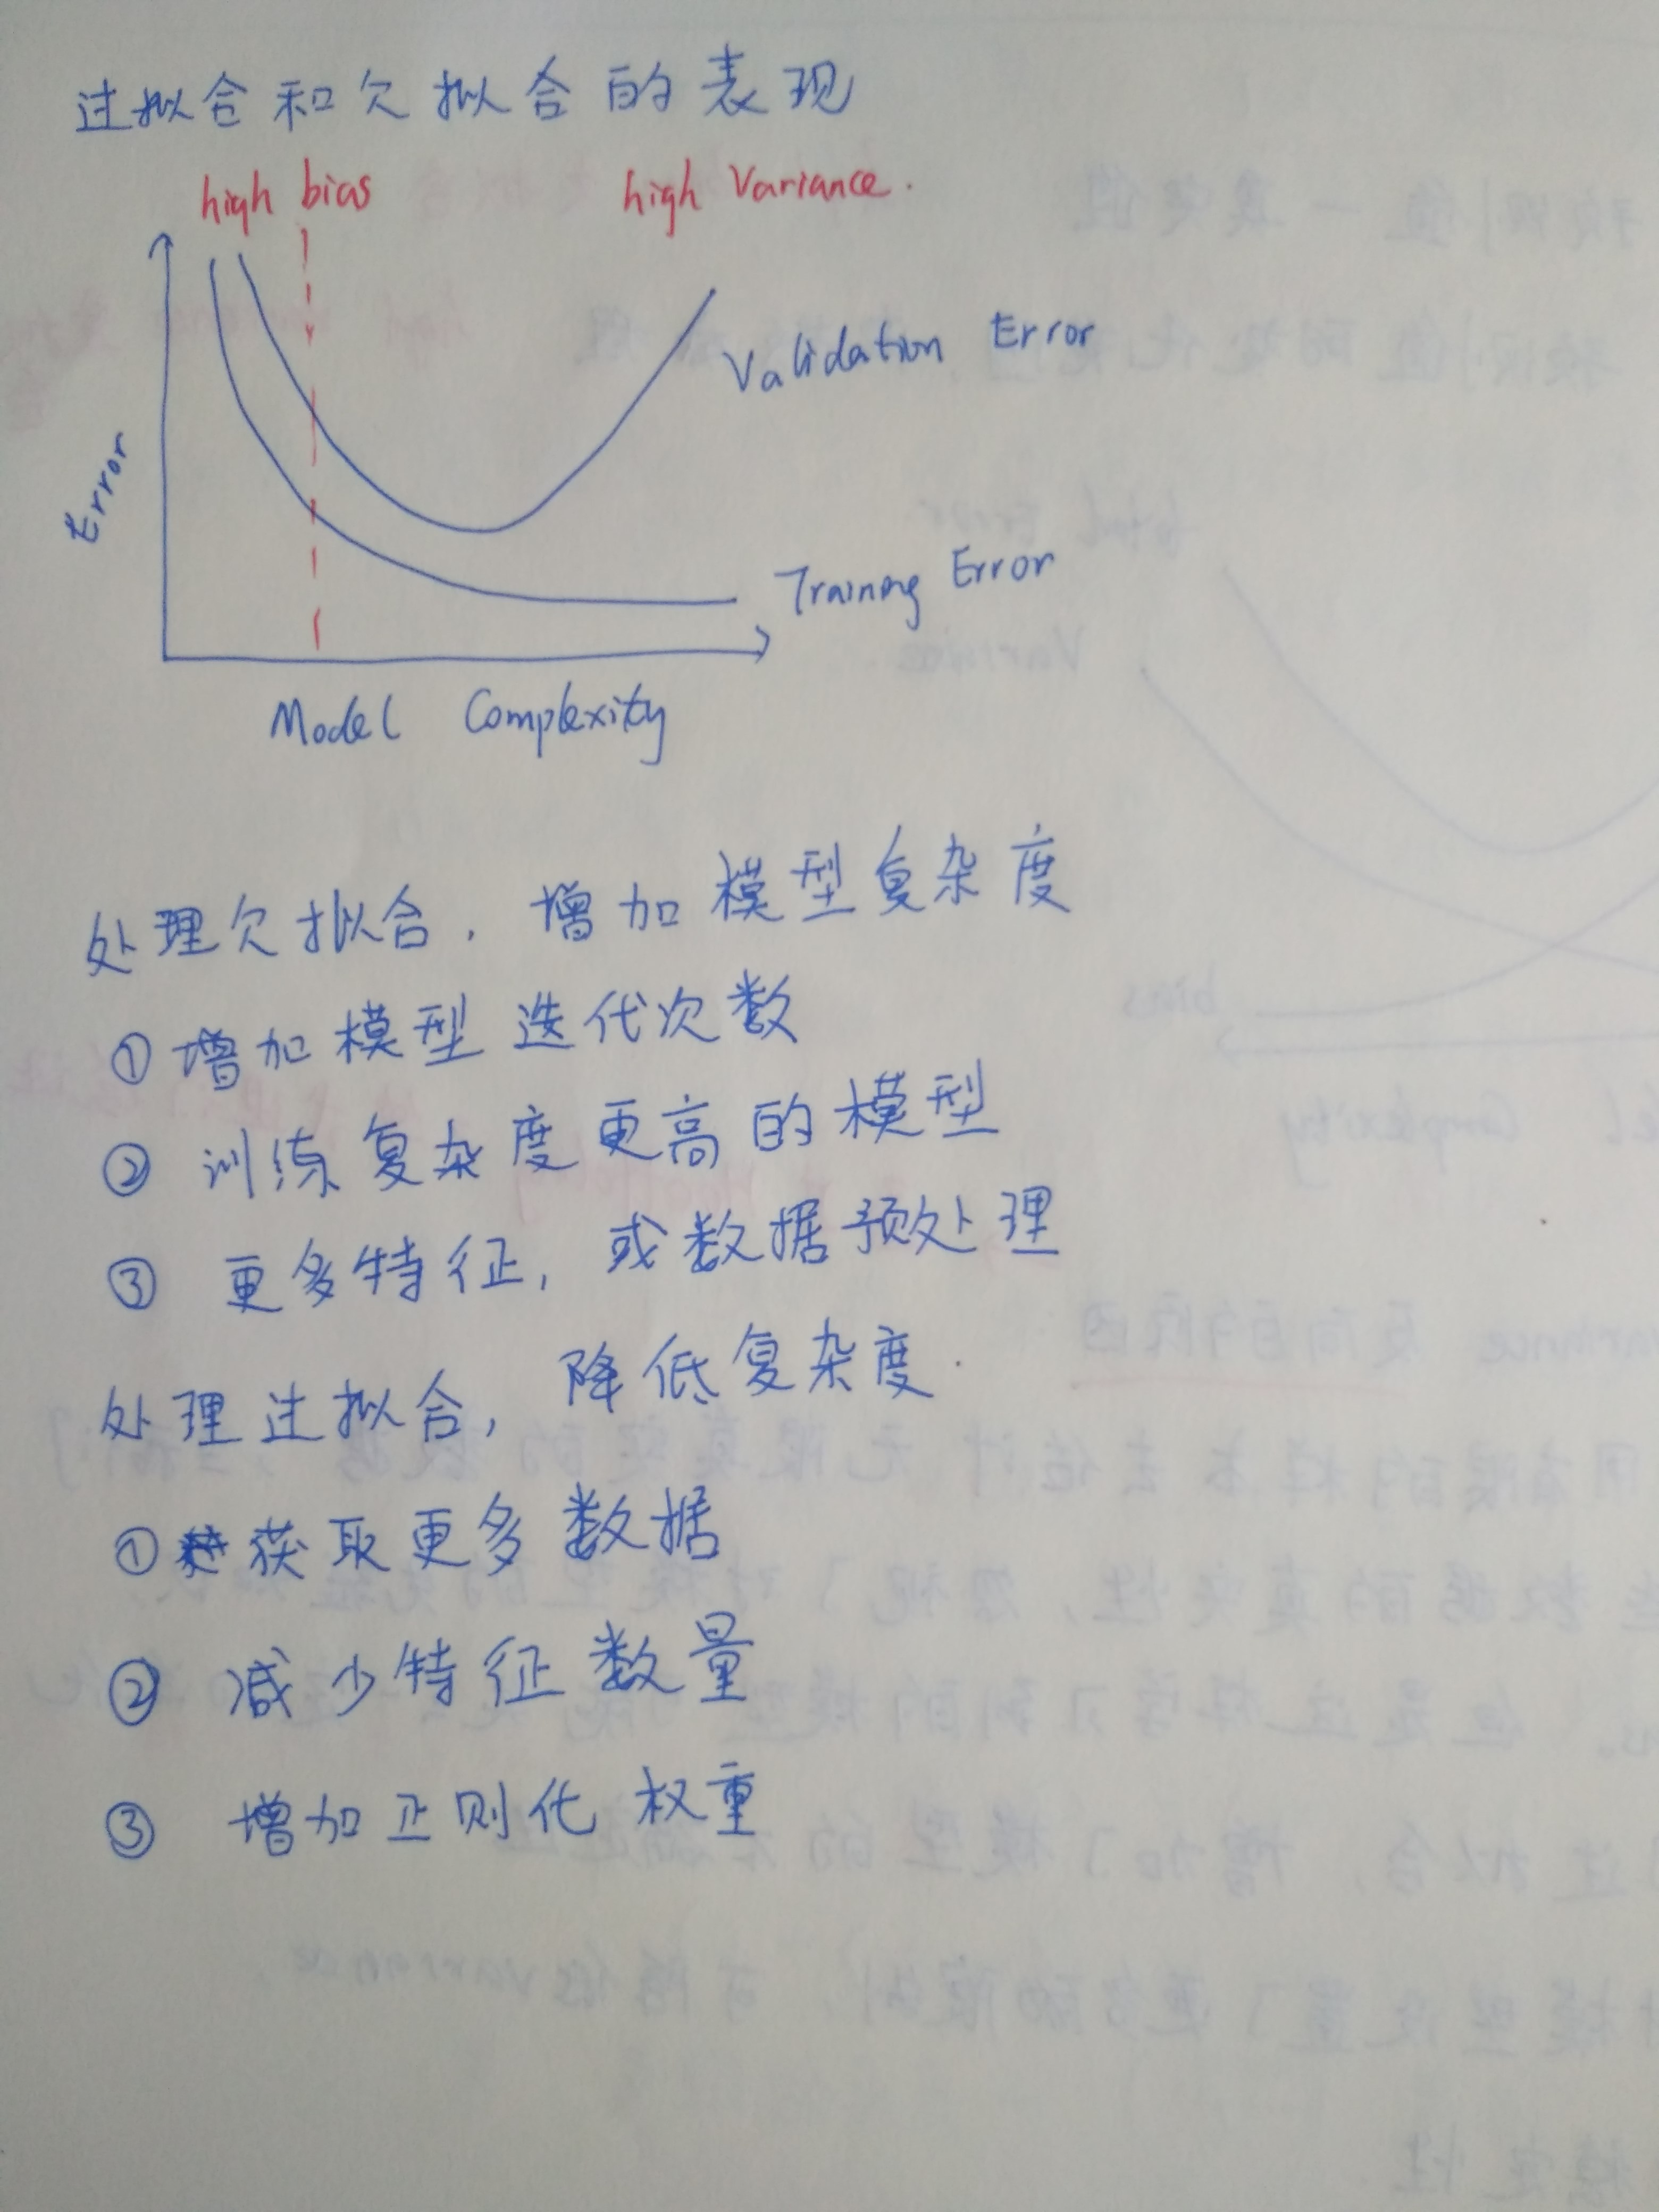 过拟合和欠拟合的表现
high bias
high Variance.
Validation Error
Error
Training Error
Model Complexity
处理欠拟合，增加模型复杂度
① 增加模型迭代次数
② 训练复杂度更高的模型
③ 更多特征，或数据预处理
处理过拟合，降低复杂度.
① 获取更多数据
② 减少特征数量
③ 增加正则化权重